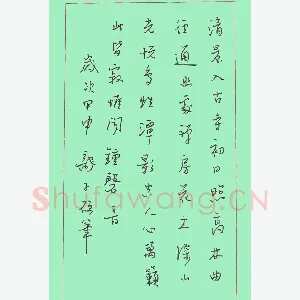 清晨入古寺初日照高林曲
径通幽處禪房花木深山
光悦鸟性潭影空人心萬籟
此皆寂惟聞鐘磬音
歲次甲申 筆
Shufawang.CN